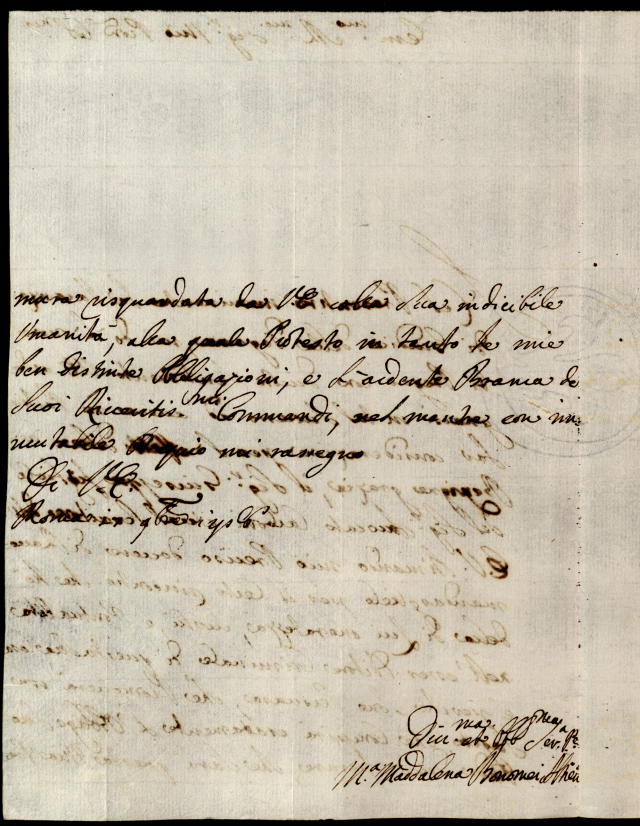 mura risguardata da V.E. colla Sua indicibile
Umanità, alla quale Protesto in tanto le mie
ben distinte Obbligazioni, e l'ardente Brama de
Suoi Riveritis.mi Commandi, nel mentre con im
mutabile Ossequio mi rassegno
Di V.E.
Roma
Div.ma et Obb.ma Ser.a
M.a Maddalena Bonomei